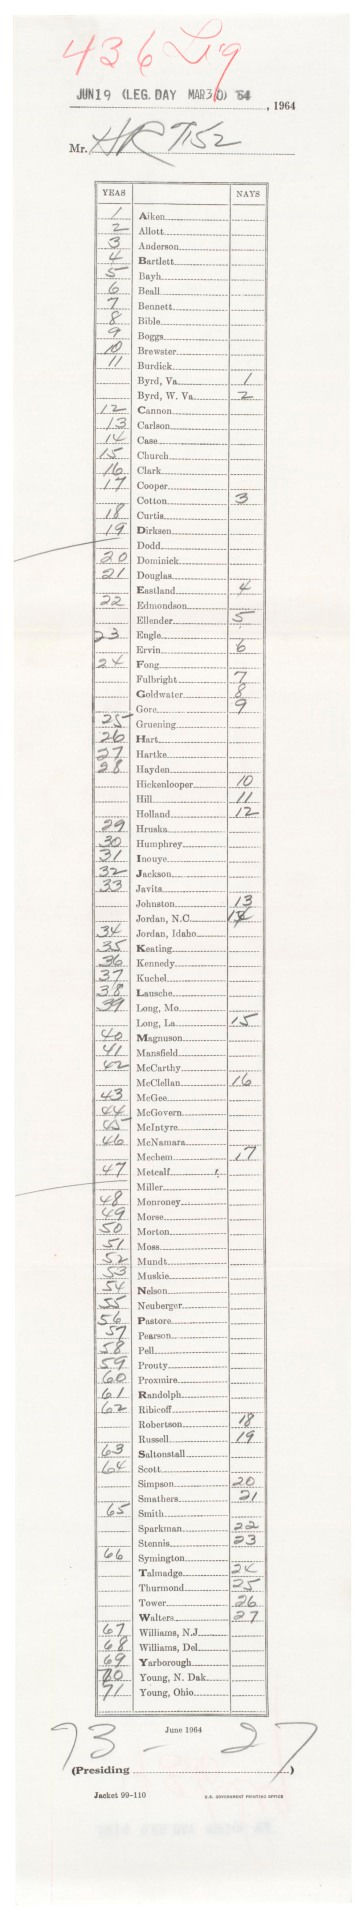 436 Leg
JUN 19 (LEG. DAY MAR 30) '64
, 1964
Mr. HR 7152
YEAS NAYS
1 Aiken
2 Allott
3 Anderson
4 Bartlett
5 Bayh
6 Beall
7 Bennett
8 Bible
9 Boggs
10 Brewster
11 Burdick
Byrd, Va. 1
Byrd, W. Va. 2
12 Cannon
13 Carlson
14 Case
15 Church
16 Clark
17 Cooper
Cotton 3
18 Curtis
19 Dirksen
Dodd
20 Dominick
21 Douglas
Eastland 4
22 Edmondson
Ellender 5
23 Engle
Ervin 6
24 Fong
Fulbright 7
Goldwater 8
Gore 9
25 Gruening
26 Hart
27 Hartke
28 Hayden
Hickenlooper 10
Hill 11
Holland 12
29 Hruska
30 Humphrey
31 Inouye
32 Jackson
33 Javits
Johnston 13
Jordan, N.C. 14
34 Jordan, Idaho
35 Keating
36 Kennedy
37 Kuchel
38 Lausche
39 Long, Mo.
Long, La. 15
40 Magnuson
41 Mansfield
42 McCarthy
McClellan 16
43 McGee
44 McGovern
45 McIntyre
46 McNamara
Mechem 17
47 Metcalf
Miller
48 Monroney
49 Morse
50 Morton
51 Moss
52 Mundt
53 Muskie
54 Nelson
55 Neuberger
56 Pastore
57 Pearson
58 Pell
59 Prouty
60 Proxmire
61 Randolph
62 Ribicoff
Robertson 18
Russell 19
63 Saltonstall
64 Scott
Simpson 20
Smathers 21
65 Smith
Sparkman 22
Stennis 23
66 Symington
Talmadge 24
Thurmond 25
Tower 26
Walters 27
67 Williams, N.J.
68 Williams, Del.
69 Yarborough
70 Young, N. Dak.
71 Young, Ohio
June 1964
73 — 27
(Presiding )
Jacket 99-110 U.S. GOVERNMENT PRINTING OFFICE